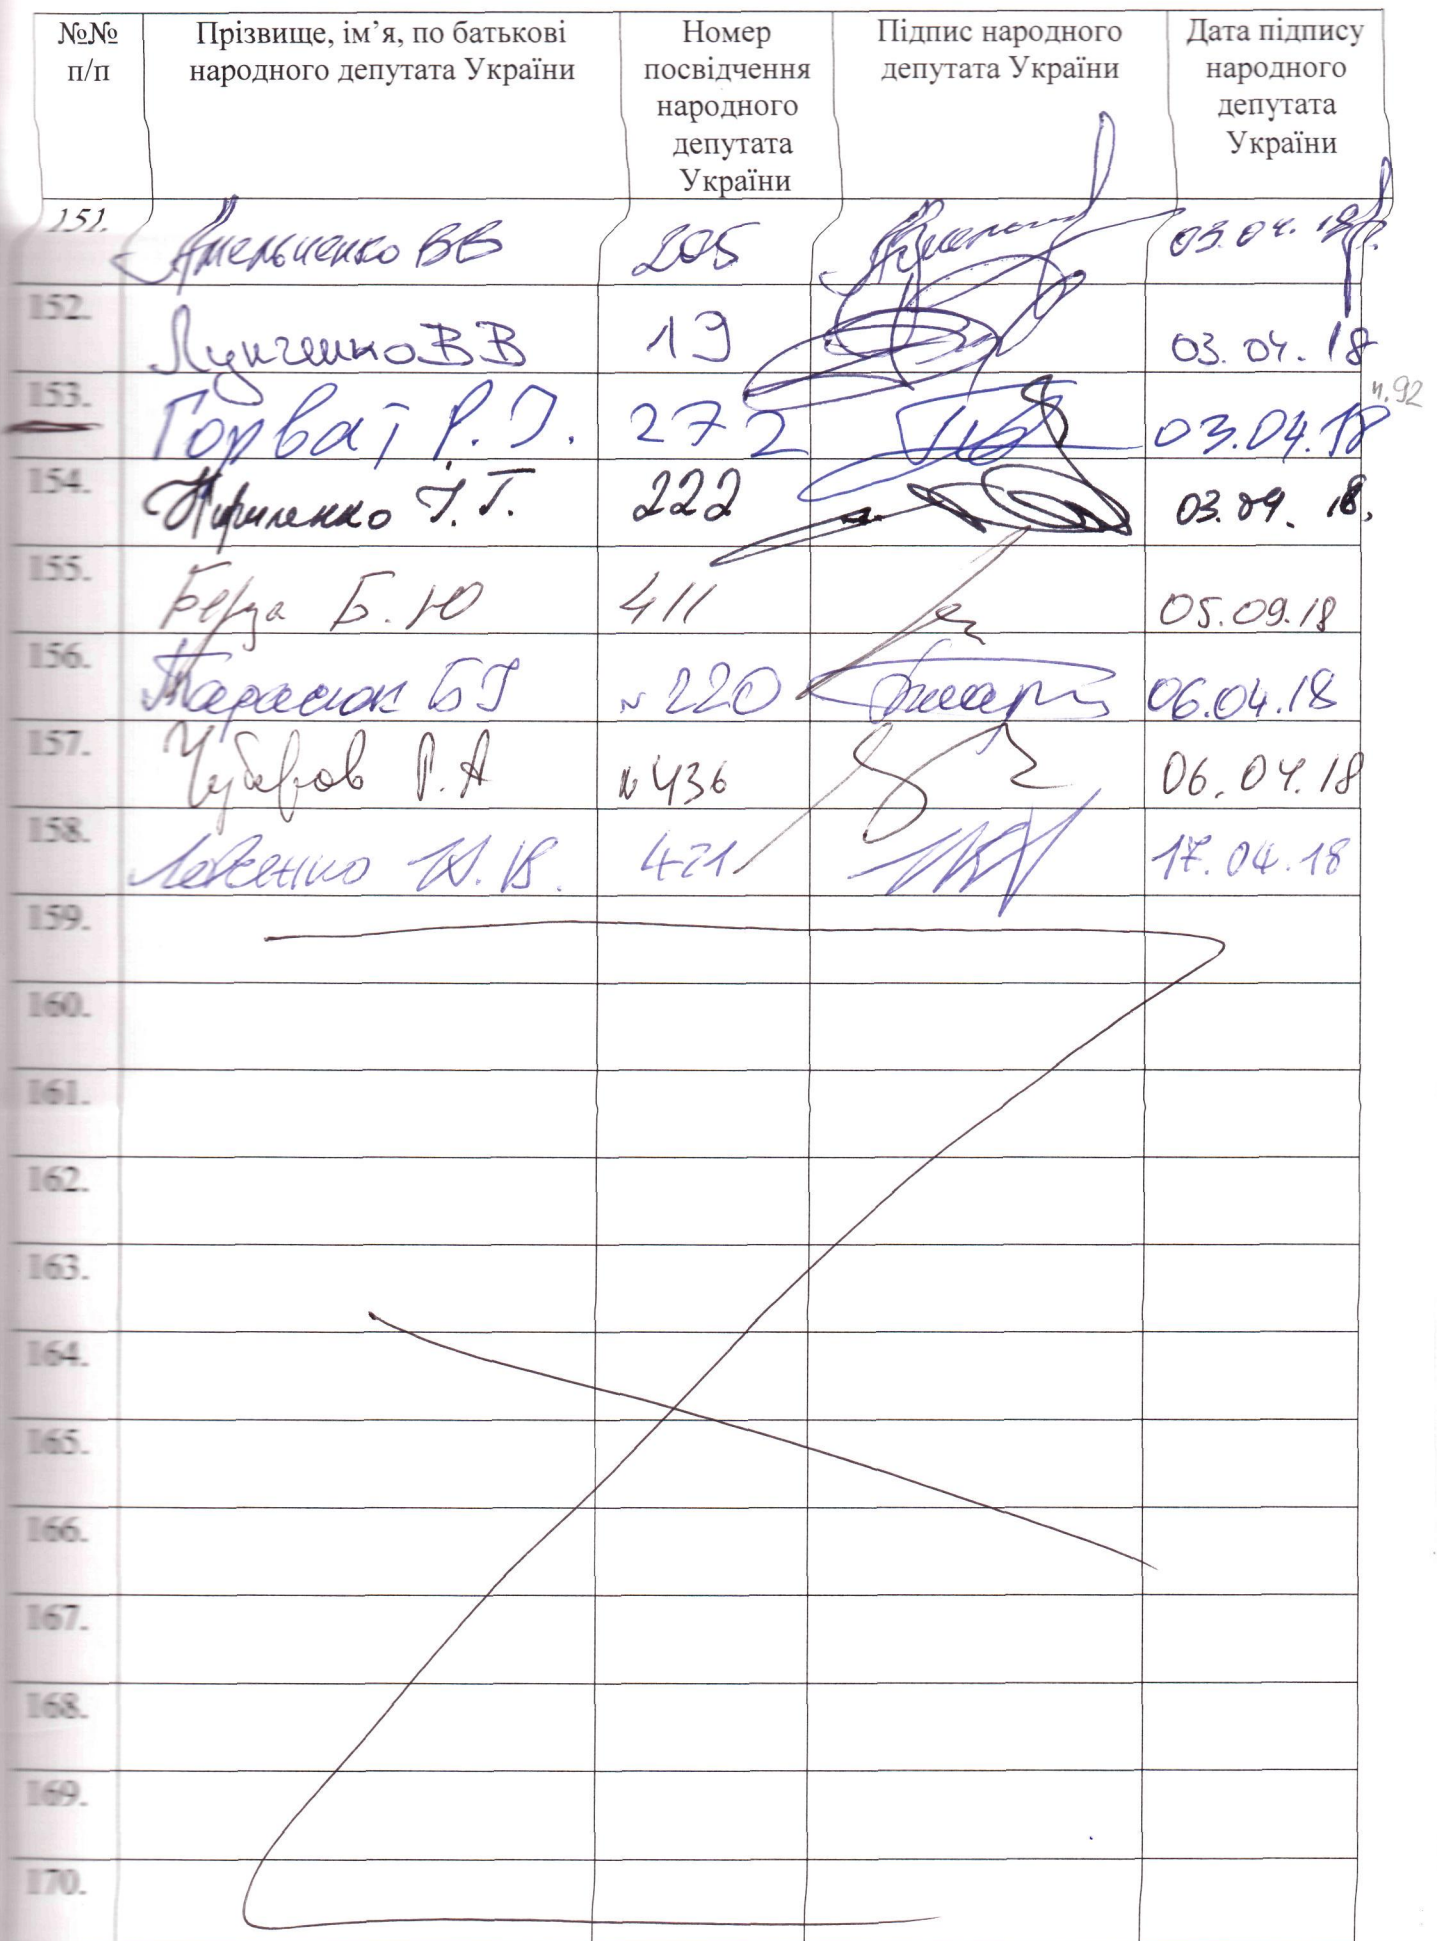 №№ п/п Прізвище, ім’я, по батькові народного депутата України Номер посвідчення народного депутата України Підпис народного депутата України Дата підпису народного депутата України
151. Амельченко ВВ 205 03.04.18
152. Лунченко ВВ 19 03.04.18
п.92
153. Горват Р.І. 272 03.04.18
154. Кириленко І.Г. 222 03.04.18.
155. Береза Б.Ю 411 05.09.18
156. Тарасюк БІ №220 06.04.18
157. Чубаров Р.А №436 06.04.18
158. 421 17.04.18
159.
160.
161.
162.
163.
164.
165.
166.
167.
168.
169.
170.